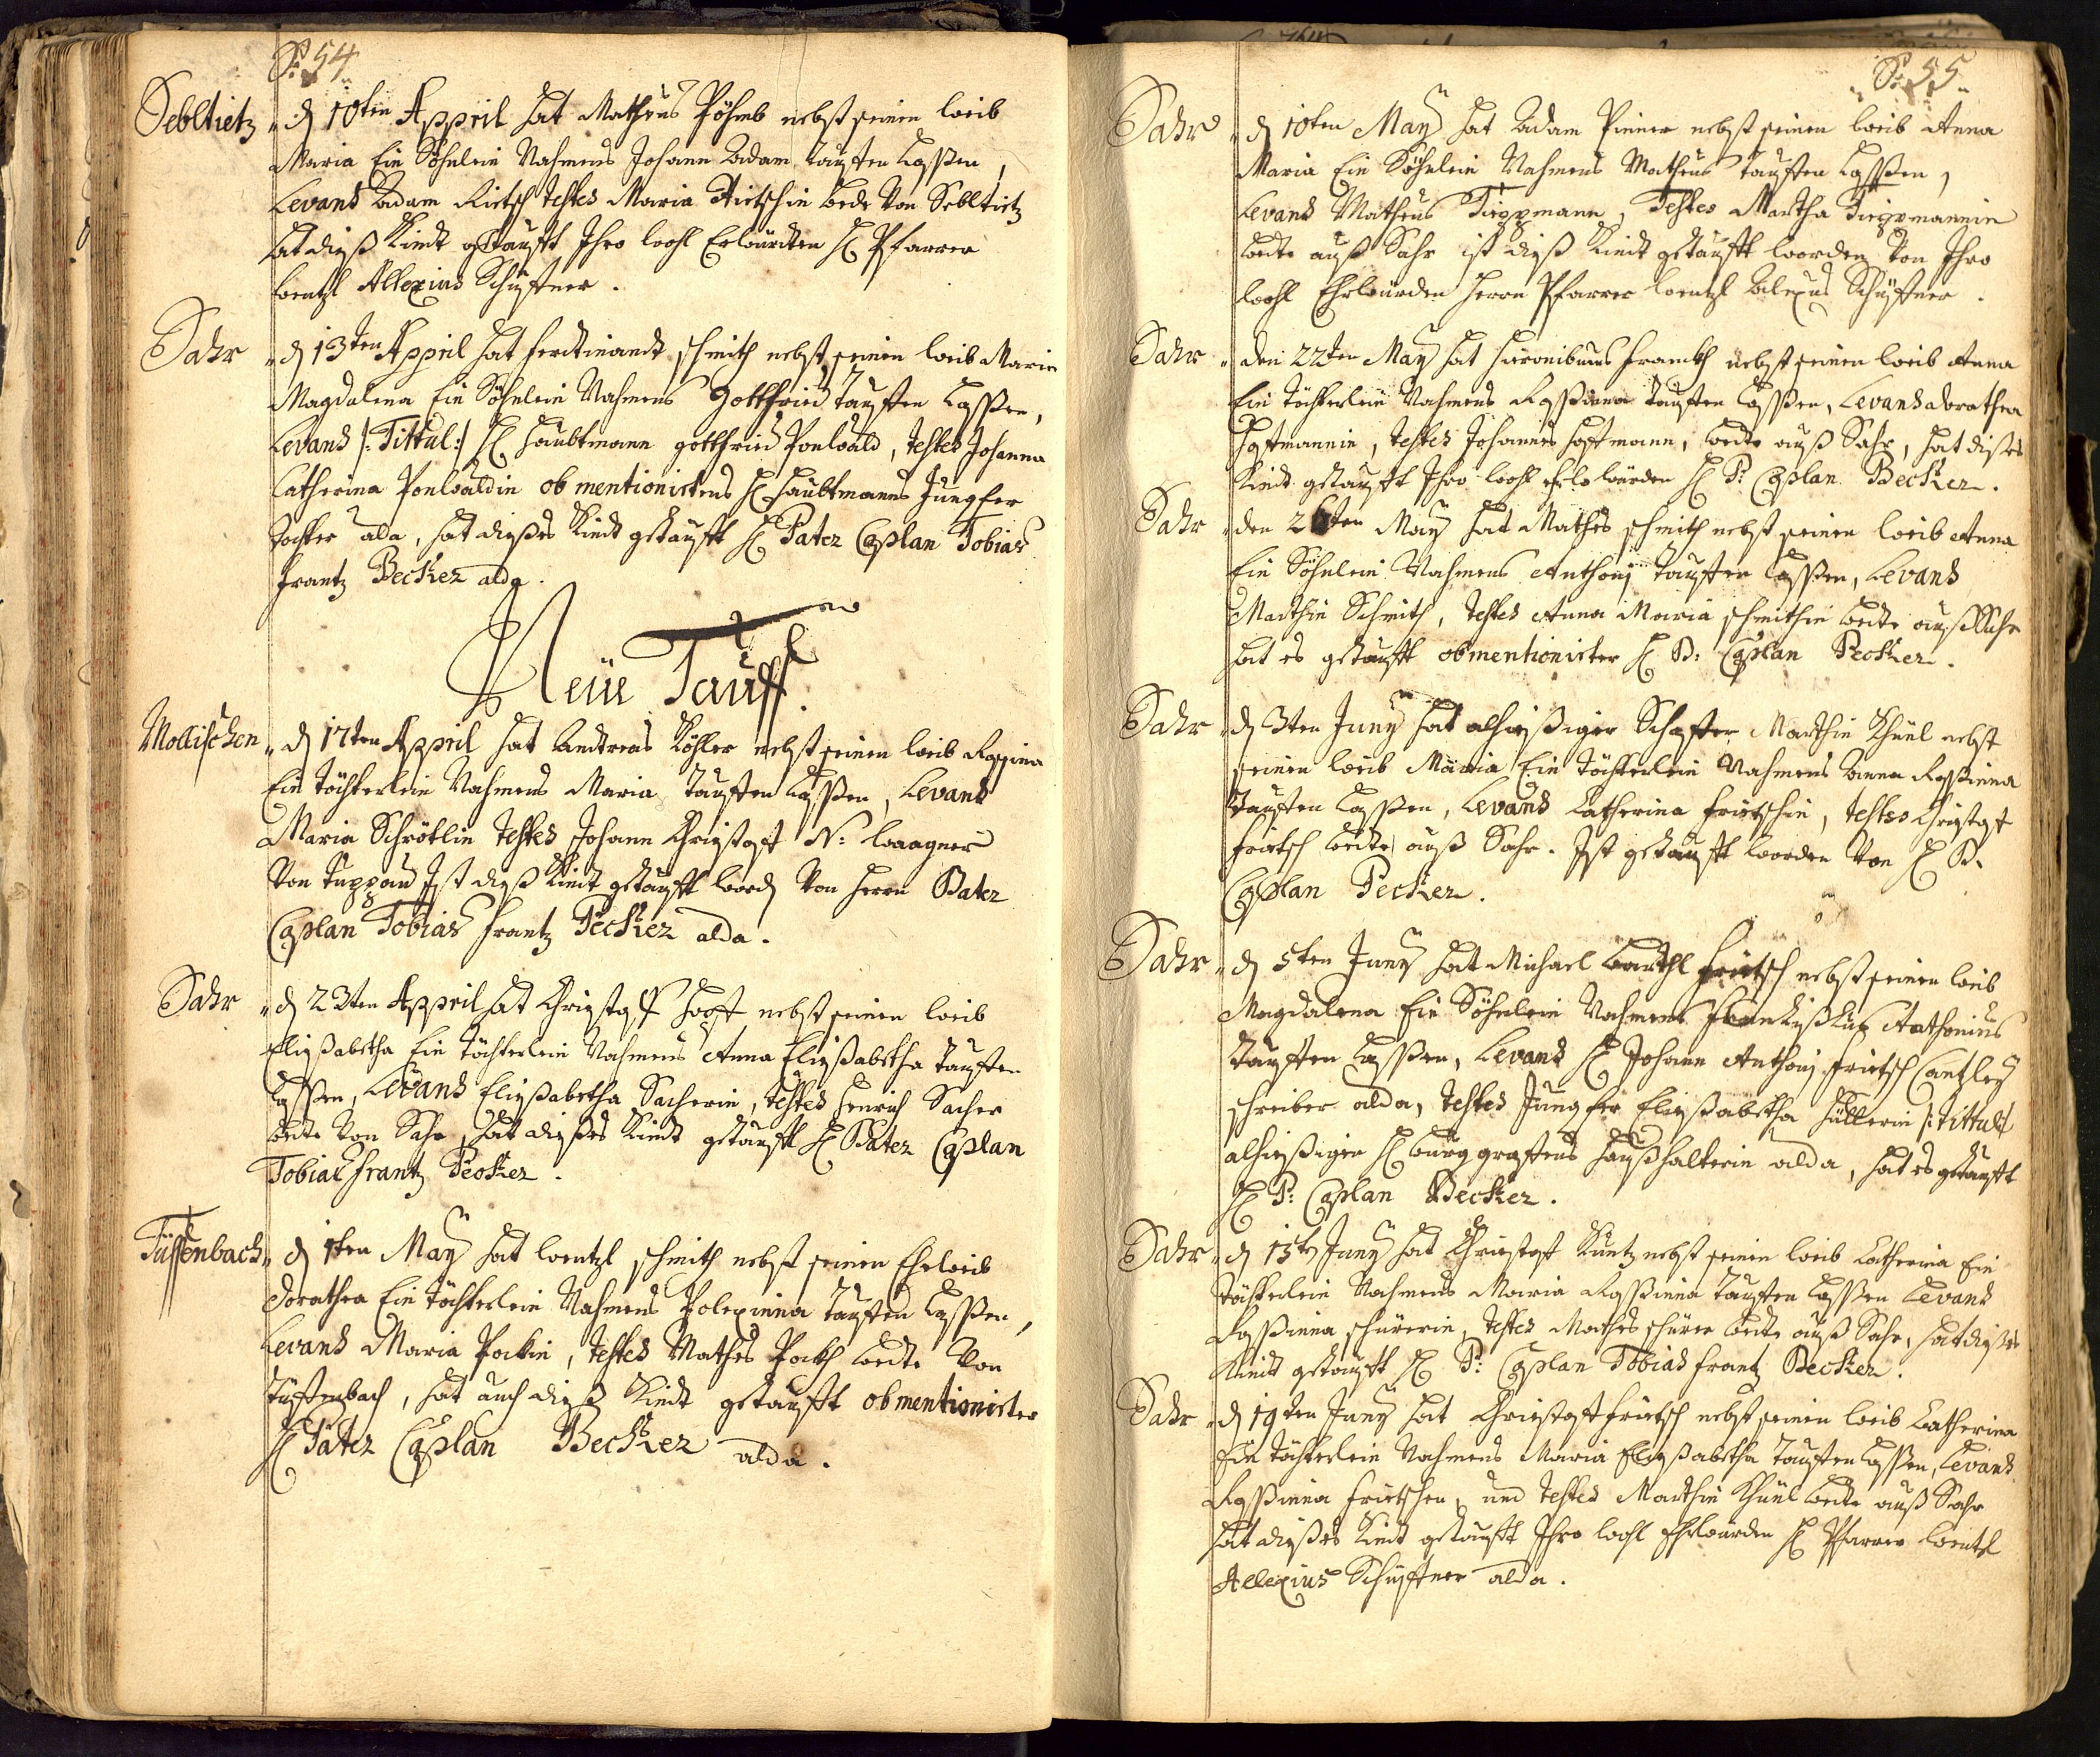 P: 54
Sebltietz „ d 10ten Appril hat Matheus Böhmb nebst seinen Weib
Maria Ein Söhnlein Nahmens Johann Adam tauffen laßßen,
Levans Adam Rietsch Testes Maria Rietschin bede von Sebltietz
hat dieß Kindt getaufft Ihro Wohl Erwürdten H Pfarrer
Wentzl Allexius Schuftner.
Sahr „ d 13ten Appril hat ferdtinandt schmith nebst seinen Weib Maria
Magdalena Ein Söhnlein Nahmens Gottfried tauffen laßßen,
Levans /: Tittul :/ H Haubtmann gottfried Ponwald, testes Johanna
Catherina Ponwaldin obmentionirtens H Haubtmanns Jungfer
tochter alda, hat dießes Kindt getaufft H Pater Caplan Tobias
frantz Becker alda.
Neüe Tauff.
Mollischen „ d 17ten Appril hat Andtreas Köhler nebst seinen Weib Rossina
Ein töchterlein Nahmens Maria tauffen laßßen, Levans
Maria Schrötlin testes Johann Christoff N: Waagner
von Tuppau Ist dieß Kindt getaufft word von Herrn Pater
Caplan Tobias frantz Pecker alda.
Sahr „ d 23ten Appril hat Christoff Hoff nebst seinen Weib
Elisßabetha Ein töchterlein Nahmens Anna Elisßabetha tauffen
laßßen, Levans Elisßabetha Sacherin, testes Henrich Sacher
bede von Sahr, hat dießes Kindt getaufft H Pater Caplan
Tobias frantz Pecker.
Tüffenbach „ d 1ten May hat Wentzl schmith nebst seinen Eheweib
Dorathea Ein töchterlein Nahmens Polexinna tauffen laßßen,
Levans Maria Pockin, testes Mathes Pockh bede von
Tüffenbach, hat auch dieß Kindt getaufft obmentionirter
H Pater Caplan Becker alda.
P: 55
Sahr „ d 10ten May hat Adam Pinner nebst seinen Weib Anna
Maria Ein Söhnlein Nahmens Matheus tauffen laßßen,
Levans Matheus Tieppmann, Testes Martha Tieppmannin
bede auß Sahr ist dieß Kindt getaufft worden von Ihro
Wohl Ehrwürden Herrn Pfarrer Wentzl Alexius Schuftner.
Sahr „ den 22ten May hat Hieronibmus franckh nebst seinen Weib Anna
Ein töchterlein Nahmens Rossinna tauffen laßßen, Levans Dorathea
Hoffmannin, testes Johannes Hoffmann, bede auß Sahr, hat dißes
Kindt getaufft Ihro Wohl Ehrwürden H P: Caplan Becker.
Sahr „ den 26ten May hat Mathes schmith nebst seinen Weib Anna
Ein Söhnlein Nahmens Anthonj tauffen laßßen, Levans
Marthin Schmith, testes Anna Maria schmithin bede auß Sahr
hat es getaufft obmentionirter H P: Caplan Pecker.
Sahr „ d 3ten Juny hat alhießiger Schaffer Marthin Khüel nebst
seinen Weib Maria Ein töchterlein Nahmens Anna Rossinna
tauffen laßßen, Levans Catherina frietschin, testes Christoff
frietsch bede auß Sahr. Ist getaufft worden von H P.
Caplan Pecker.
Sahr „ d 5ten Juny hat Michael Barthl frietsch nebst seinen Weib
Magdalena Ein Söhnlein Nahmens Franzißkus Anthonius
tauffen laßßen, Levans H Johann Anthonj frietsch Cantzley
schreiber alda, testes Jungfer Elisßabetha Hüllerin /: Tittul :/
alhießigen H Burggraffens Haußhalterin alda, hat es getaufft
H P: Caplan Becker.
Sahr „ d 15ten Juny hat Christoff Kuntz nebst seinen Weib Catherina Ein
töchterlein Nahmens Maria Rossinna tauffen laßßen Levans
Rossinna schürerin, testes Mathes schürer bede auß Sahr, hat dießes
Kindt getaufft H P: Caplan Tobias frantz Becker.
Sahr „ d 19ten Juny hat Christoff frietsch nebst seinen Weib Catherina
Ein töchterlein Nahmens Maria Elisßabetha tauffen laßßen, Levans
Rossinna frietschen, und testes Marthin Khüel bede auß Sahr
hat dießes Kindt getaufft Ihro Wohl Ehrwürden H Pfarrer Wentzl
Allexius Schuftner alda.